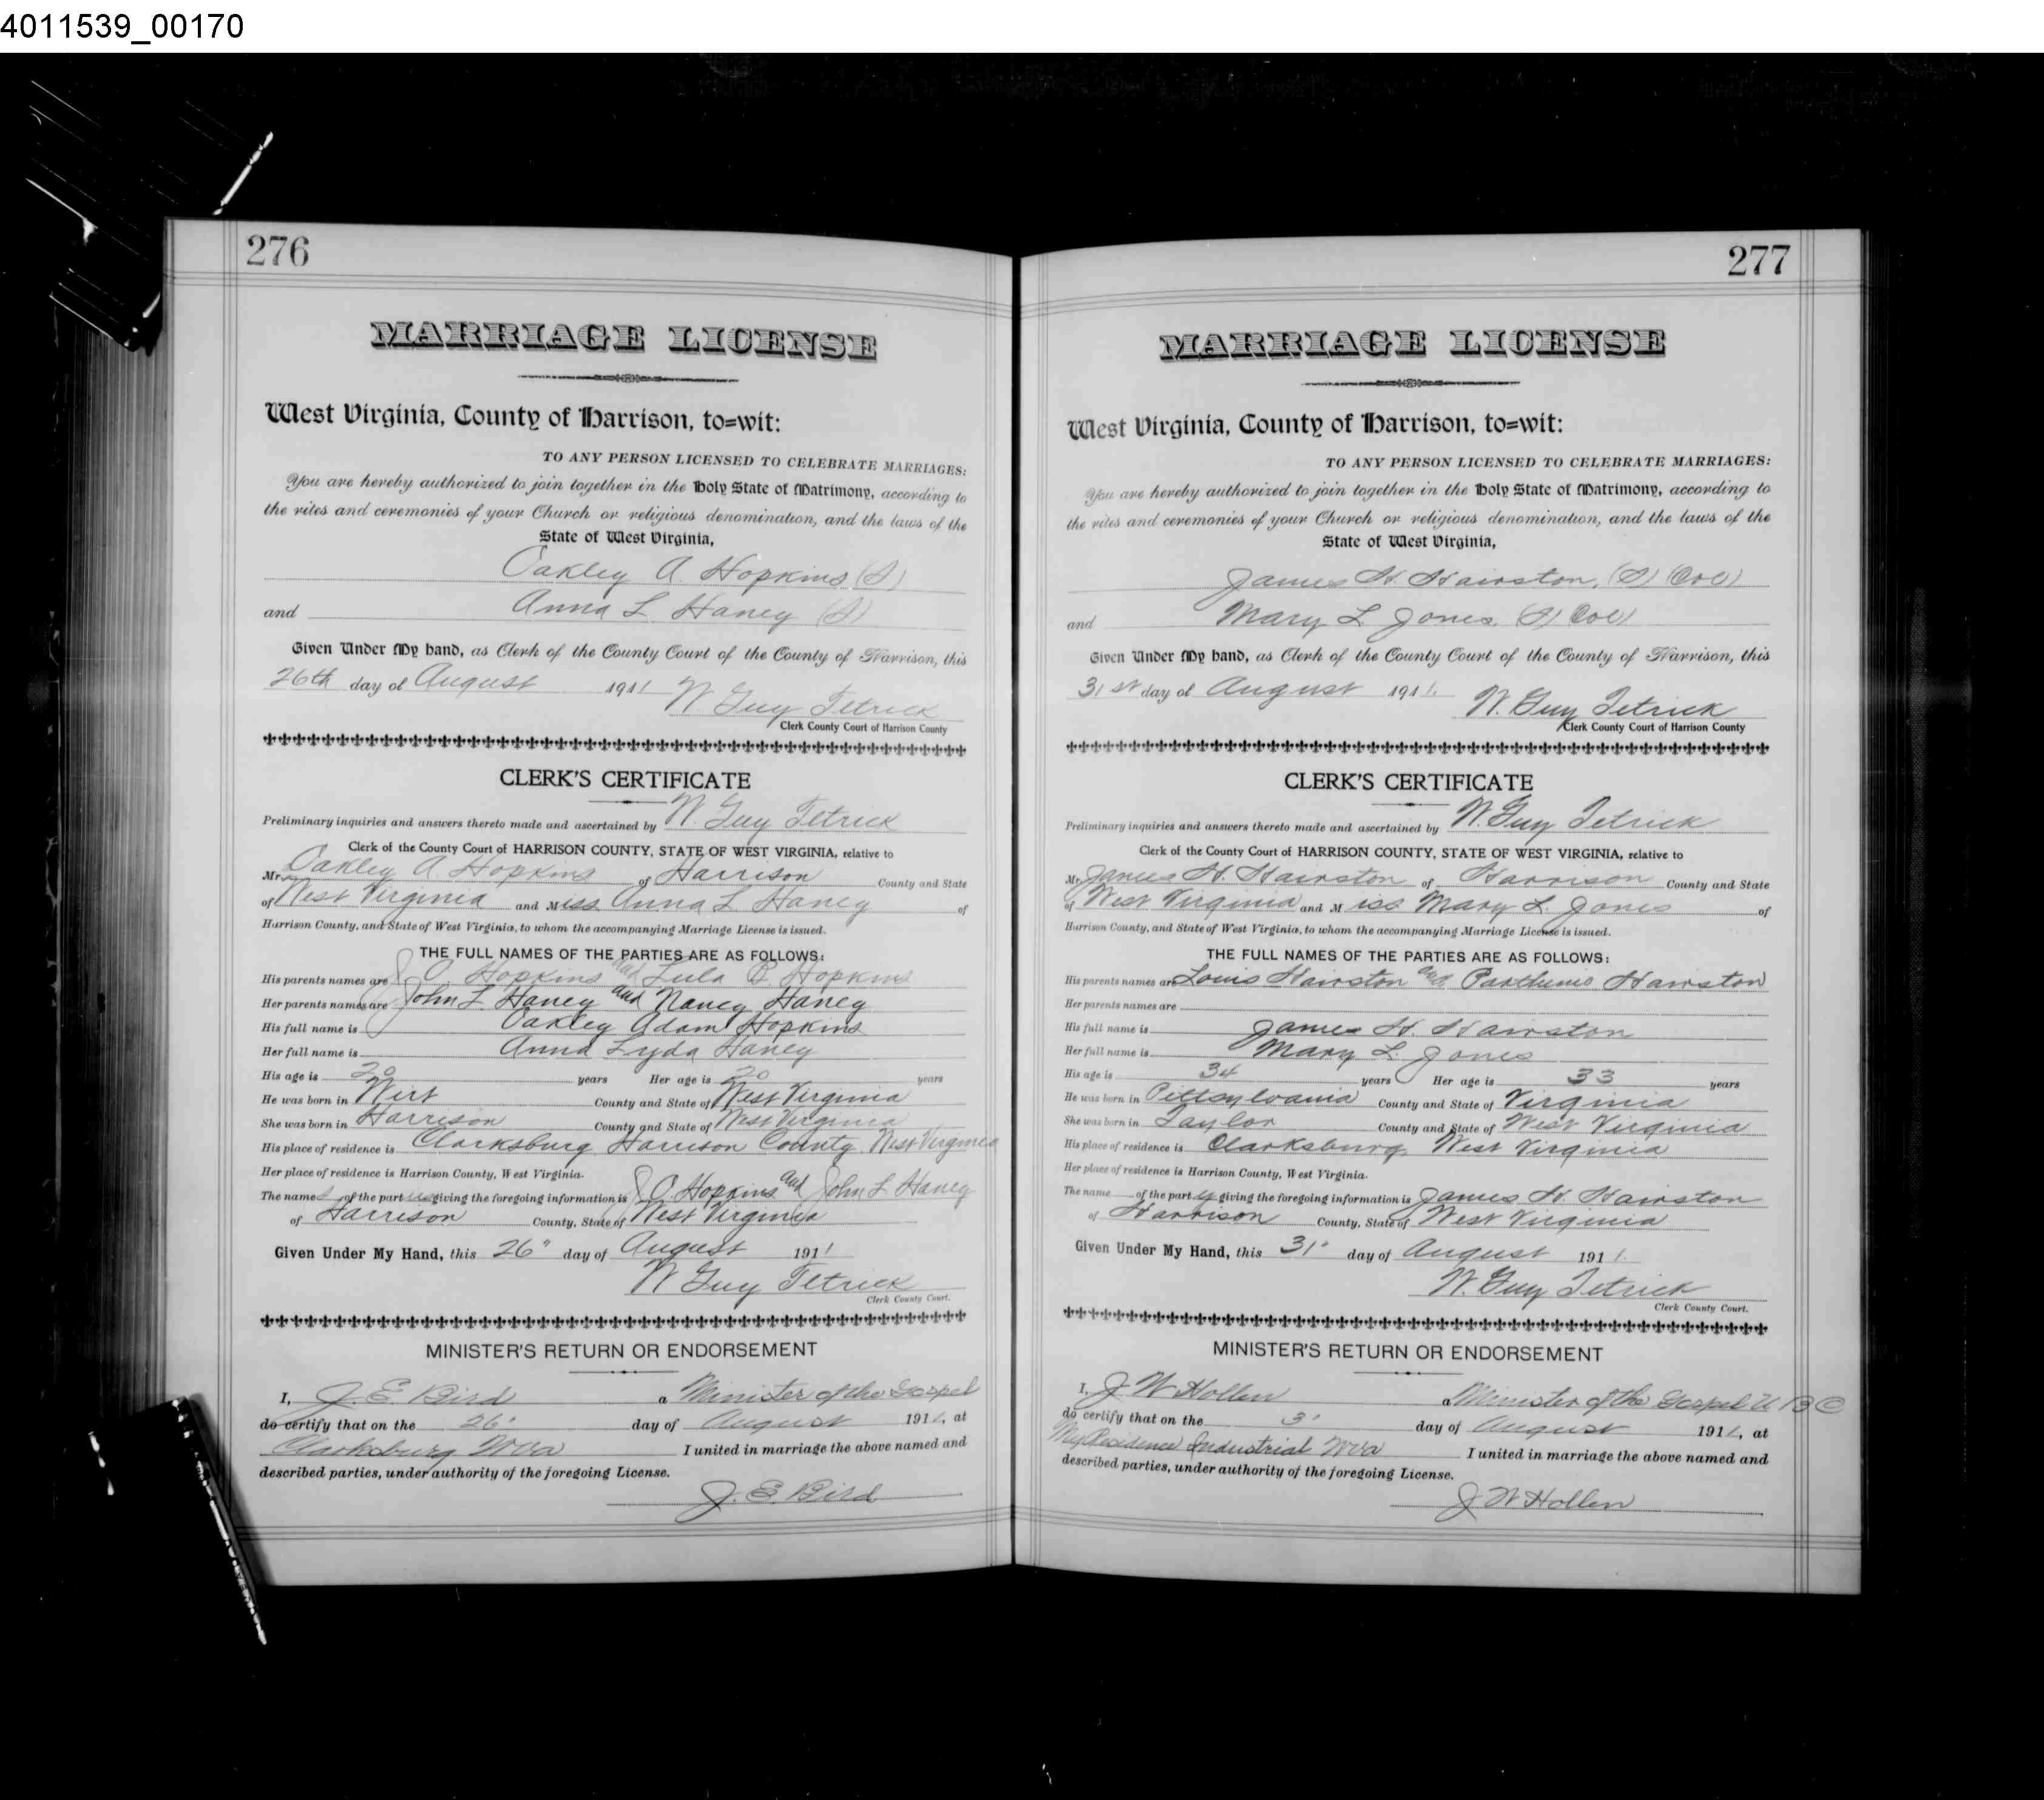 4011539_00170
276
MARRIAGE LICENSE
West Virginia, County of Harrison, to=wit:
TO ANY PERSON LICENSED TO CELEBRATE MARRIAGES:
You are hereby authorized to join together in the Holy State of Matrimony, according to
the rites and ceremonies of your Church or religious denomination, and the laws of the
State of West Virginia,
Oakley A. Hopkins (S)
and Anna L Haney (S)
Given Under My hand, as Clerk of the County Court of the County of Harrison, this
26th day of August 1911 W Guy Tetrick
Clerk County Court of Harrison County
CLERK'S CERTIFICATE
Preliminary inquiries and answers thereto made and ascertained by W. Guy Tetrick
Clerk of the County Court of HARRISON COUNTY, STATE OF WEST VIRGINIA, relative to
Mr. Oakley A. Hopkins of Harrison County and State
of West Virginia and Miss Anna L Haney of
Harrison County, and State of West Virginia, to whom the accompanying Marriage License is issued.
THE FULL NAMES OF THE PARTIES ARE AS FOLLOWS:
His parents names are J O. Hopkins and Lula B. Hopkins
Her parents names are John L. Haney and Nancy Haney
His full name is Oakley Adam Hopkins
Her full name is Anna Lyda Haney
His age is 20 years Her age is 20 years
He was born in Wirt County and State of West Virginia
She was born in Harrison County and State of West Virginia
His place of residence is Clarksburg Harrison County, West Virginia
Her place of residence is Harrison County, West Virginia.
The names of the parties giving the foregoing information is J O. Hopkins and John L Haney
of Harrison County, State of West Virginia
Given Under My Hand, this 26" day of August 1911
W Guy Tetrick
Clerk County Court.
MINISTER'S RETURN OR ENDORSEMENT
I, J. E. Bird a Minister of the Gospel
do certify that on the 26" day of August 1911, at
Clarksburg WVa I united in marriage the above named and
described parties, under authority of the foregoing License.
J. E. Bird
277
MARRIAGE LICENSE
West Virginia, County of Harrison, to=wit:
TO ANY PERSON LICENSED TO CELEBRATE MARRIAGES:
You are hereby authorized to join together in the Holy State of Matrimony, according to
the rites and ceremonies of your Church or religious denomination, and the laws of the
State of West Virginia,
James H. Hairston, (S) (Col)
and Mary L Jones, (S) Col)
Given Under My hand, as Clerk of the County Court of the County of Harrison, this
31st day of August 1911. W. Guy Tetrick
Clerk County Court of Harrison County
CLERK'S CERTIFICATE
Preliminary inquiries and answers thereto made and ascertained by W. Guy Tetrick
Clerk of the County Court of HARRISON COUNTY, STATE OF WEST VIRGINIA, relative to
Mr James H. Hairston of Harrison County and State
of West Virginia and Miss Mary L. Jones of
Harrison County, and State of West Virginia, to whom the accompanying Marriage License is issued.
THE FULL NAMES OF THE PARTIES ARE AS FOLLOWS:
His parents names are Louis Hairston and Hairston
Her parents names are
His full name is James H. Hairston
Her full name is Mary L. Jones
His age is 34 years Her age is 33 years
He was born in Pittsylvania County and State of Virginia
She was born in Taylor County and State of West Virginia
His place of residence is Clarksburg, West Virginia
Her place of residence is Harrison County, West Virginia.
The name of the party giving the foregoing information is James H. Hairston
of Harrison County, State of West Virginia
Given Under My Hand, this 31" day of August 1911.
W. Guy Tetrick
Clerk County Court.
MINISTER'S RETURN OR ENDORSEMENT
I, J W Hollen a Minister of the Gospel U B C
do certify that on the 3" day of August 1911, at
My Residence Industrial WVa I united in marriage the above named and
described parties, under authority of the foregoing License.
J W Hollen